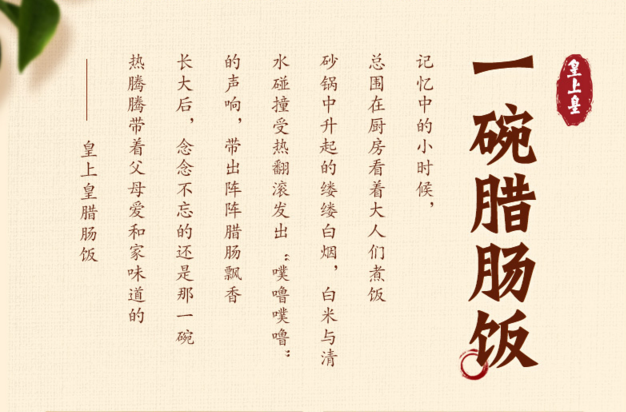 皇上皇
一碗腊肠饭
记忆中的小时候，
总围在厨房看着大人们煮饭
砂锅中升起的缕缕白烟，白米与清
水碰撞受热翻滚发出“噗噜噗噜”
的声响，带出阵阵腊肠飘香
长大后，念念不忘的还是那一碗
热腾腾带着父母爱和家味道的
——皇上皇腊肠饭